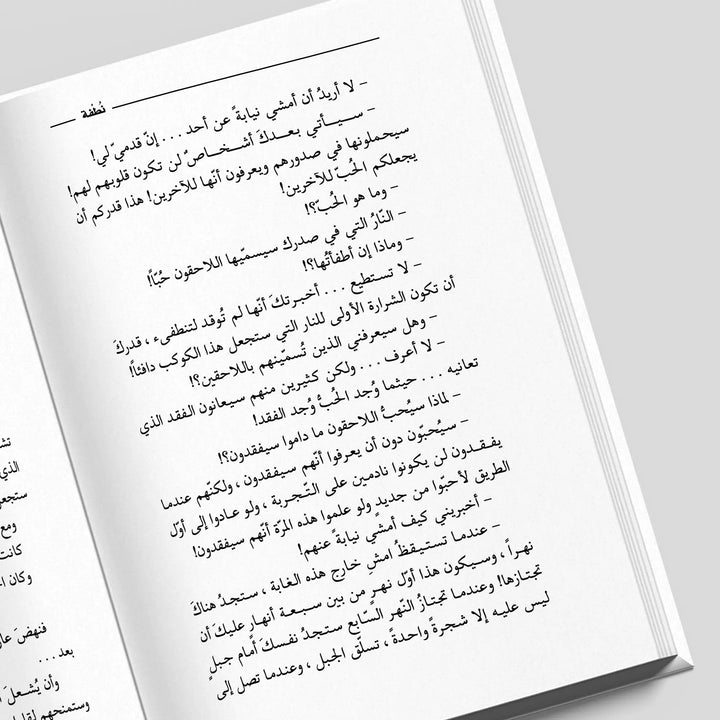 نُطْفة
– لا أريدُ أن أمشي نيابةً عن أحد ... إنّ قدميّ لي!
– سيأتي بعدكَ أشخاصٌ لن تكون قلوبهم لهم!
سيحملونها في صدورهم ويعرفون أنّها للآخرين! هذا قدركم أن
يجعلكم الحُبّ للآخرين!
– وما هو الحُبّ؟!
– النّارُ التي في صدرك سيسمّيها اللاحقون حُبّاً!
– وماذا إن أطفأتُها؟!
– لا تستطيع ... أخبرتكَ أنّها لم تُوقد لتنطفىء ، قدركَ
أن تكون الشرارة الأولى للنار التي ستجعل هذا الكوكب دافئاً!
– وهل سيعرفني الذين تُسمّينهم باللاحقين؟!
– لا أعرف ... ولكن كثيرين منهم سيعانون الفقد الذي
تعانيه ... حيثما وُجد الحُبُّ وُجد الفقد!
– لماذا سيُحبُّ اللاحقون ما داموا سيفقدون؟!
– سيُحبّون دون أن يعرفوا أنّهم سيفقدون ، ولكنّهم عندما
يفقدون لن يكونوا نادمين على التّجربة ، ولو عادوا إلى أوّل
الطريق لأحبّوا من جديدٍ ولو علموا هذه المرّة أنّهم سيفقدون!
– أخبريني كيف أمشي نيابةً عنهم!
– عندما تستيقظُ امشِ خارج هذه الغابة ، ستجدُ هناكَ
نهراً ، وسيكون هذا أوّل نهرٍ من بين سبعة أنهارٍ عليكَ أن
تجتازها! وعندما تجتازُ النّهر السّابع ستجدُ نفسكَ أمام جبلٍ
ليس عليه إلا شجرةً واحدةً ، تسلّق الجبل ، وعندما تصل إلى
الذي
ومع
كانت
وكان
فنهضَ
بعد ...
وأن يُشعلَ
وستمنحهم